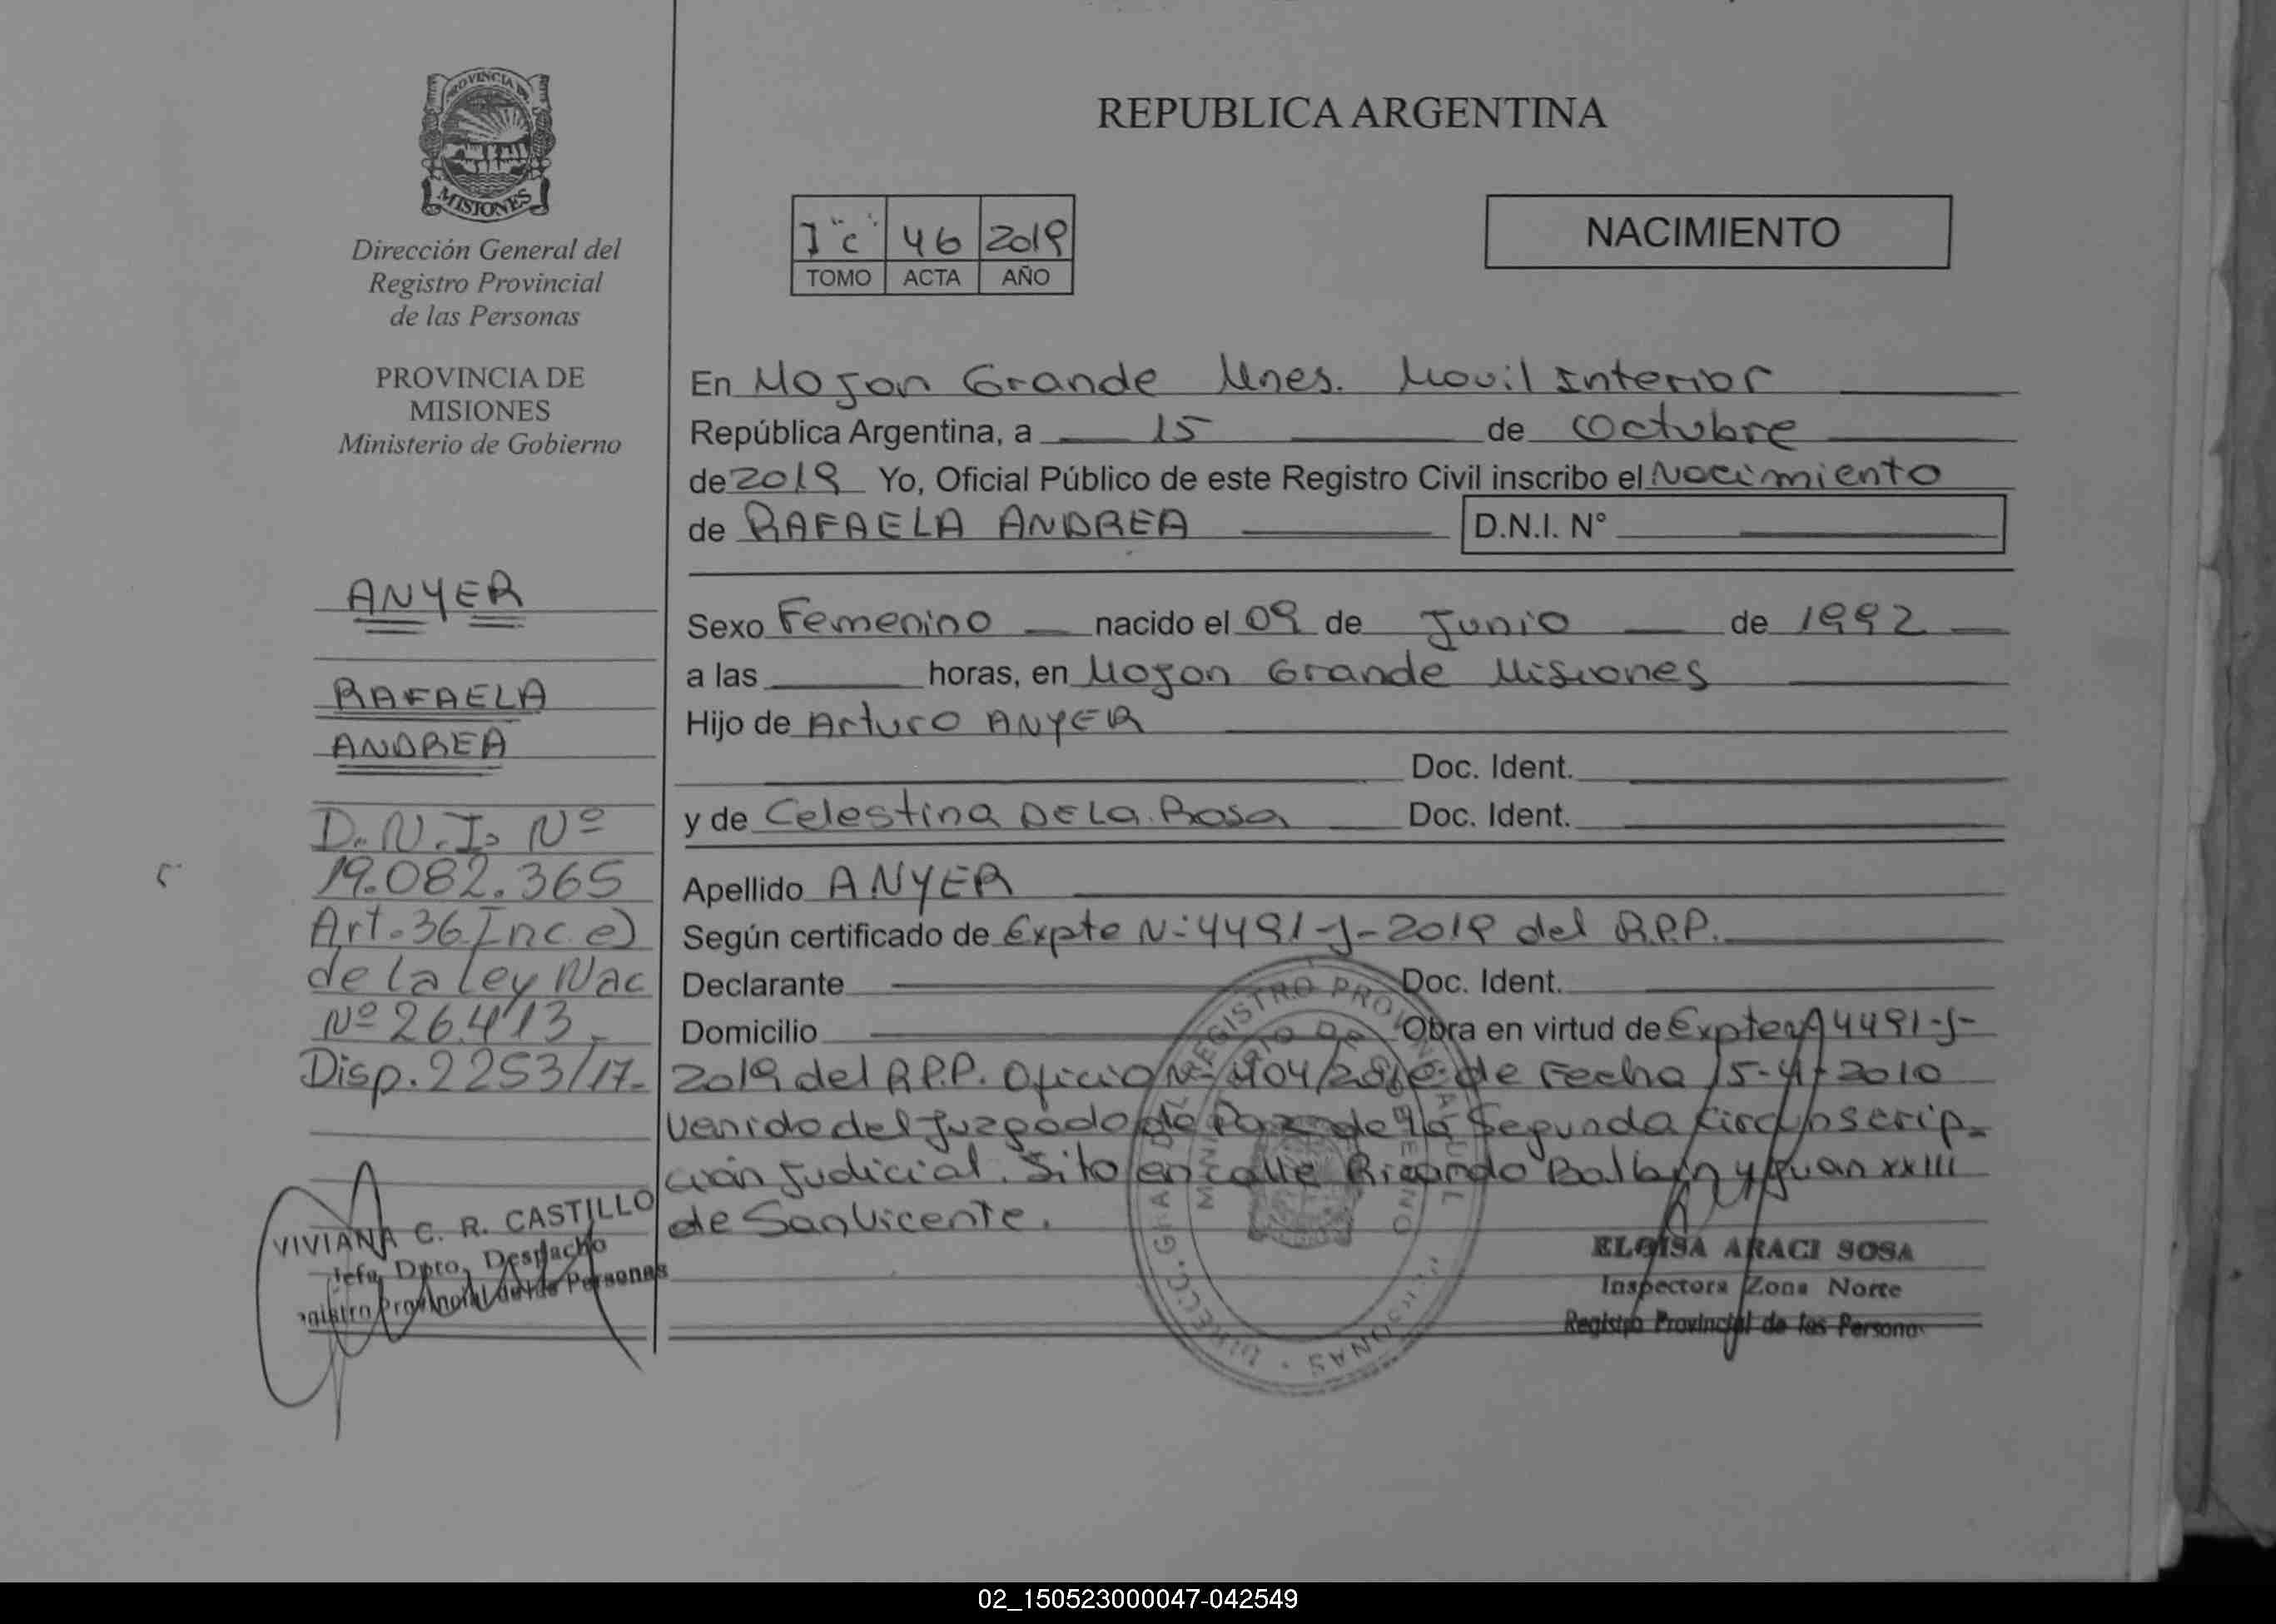 PROVINCIA DE
MISIONES
Dirección General del
Registro Provincial
de las Personas
PROVINCIA DE
MISIONES
Ministerio de Gobierno
ANYER
RAFAELA
ANDREA
D.N.I. Nº
19.082.365
Art. 36 Inc e)
de la ley Nac
Nº 26.413.
Disp. 2253/17.
VIVIANA C. R. CASTILLO
Jefa Dpto. Despacho
Registro Provincial de las Personas
REPUBLICA ARGENTINA
1 "c" 46 2019
TOMO ACTA AÑO
NACIMIENTO
En Mojon Grande Mnes. Movil Interior
República Argentina, a 15 de Octubre
de 2019 Yo, Oficial Público de este Registro Civil inscribo el Nacimiento
de RAFAELA ANDREA D.N.I. N°
Sexo Femenino nacido el 09 de Junio de 1992
a las horas, en Mojon Grande Misiones
Hijo de Arturo ANYER
Doc. Ident.
y de Celestina DE La Rosa Doc. Ident.
Apellido ANYER
Según certificado de Expte N: 4491-J-2019 del R.P.P.
Declarante Doc. Ident.
Domicilio Obra en virtud de Expte 4491-J-
2019 del R.P.P. Oficio de Fecha 15-4-2010
venido del Juzgado de Paz de la Segunda Circunscrip-
ción Judicial. Sito en calle Ricardo Balbin y Juan XXIII
de San Vicente.
ELOISA ARACI SOSA
Inspectora Zona Norte
Registro Provincial de las Personas
02_150523000047-042549